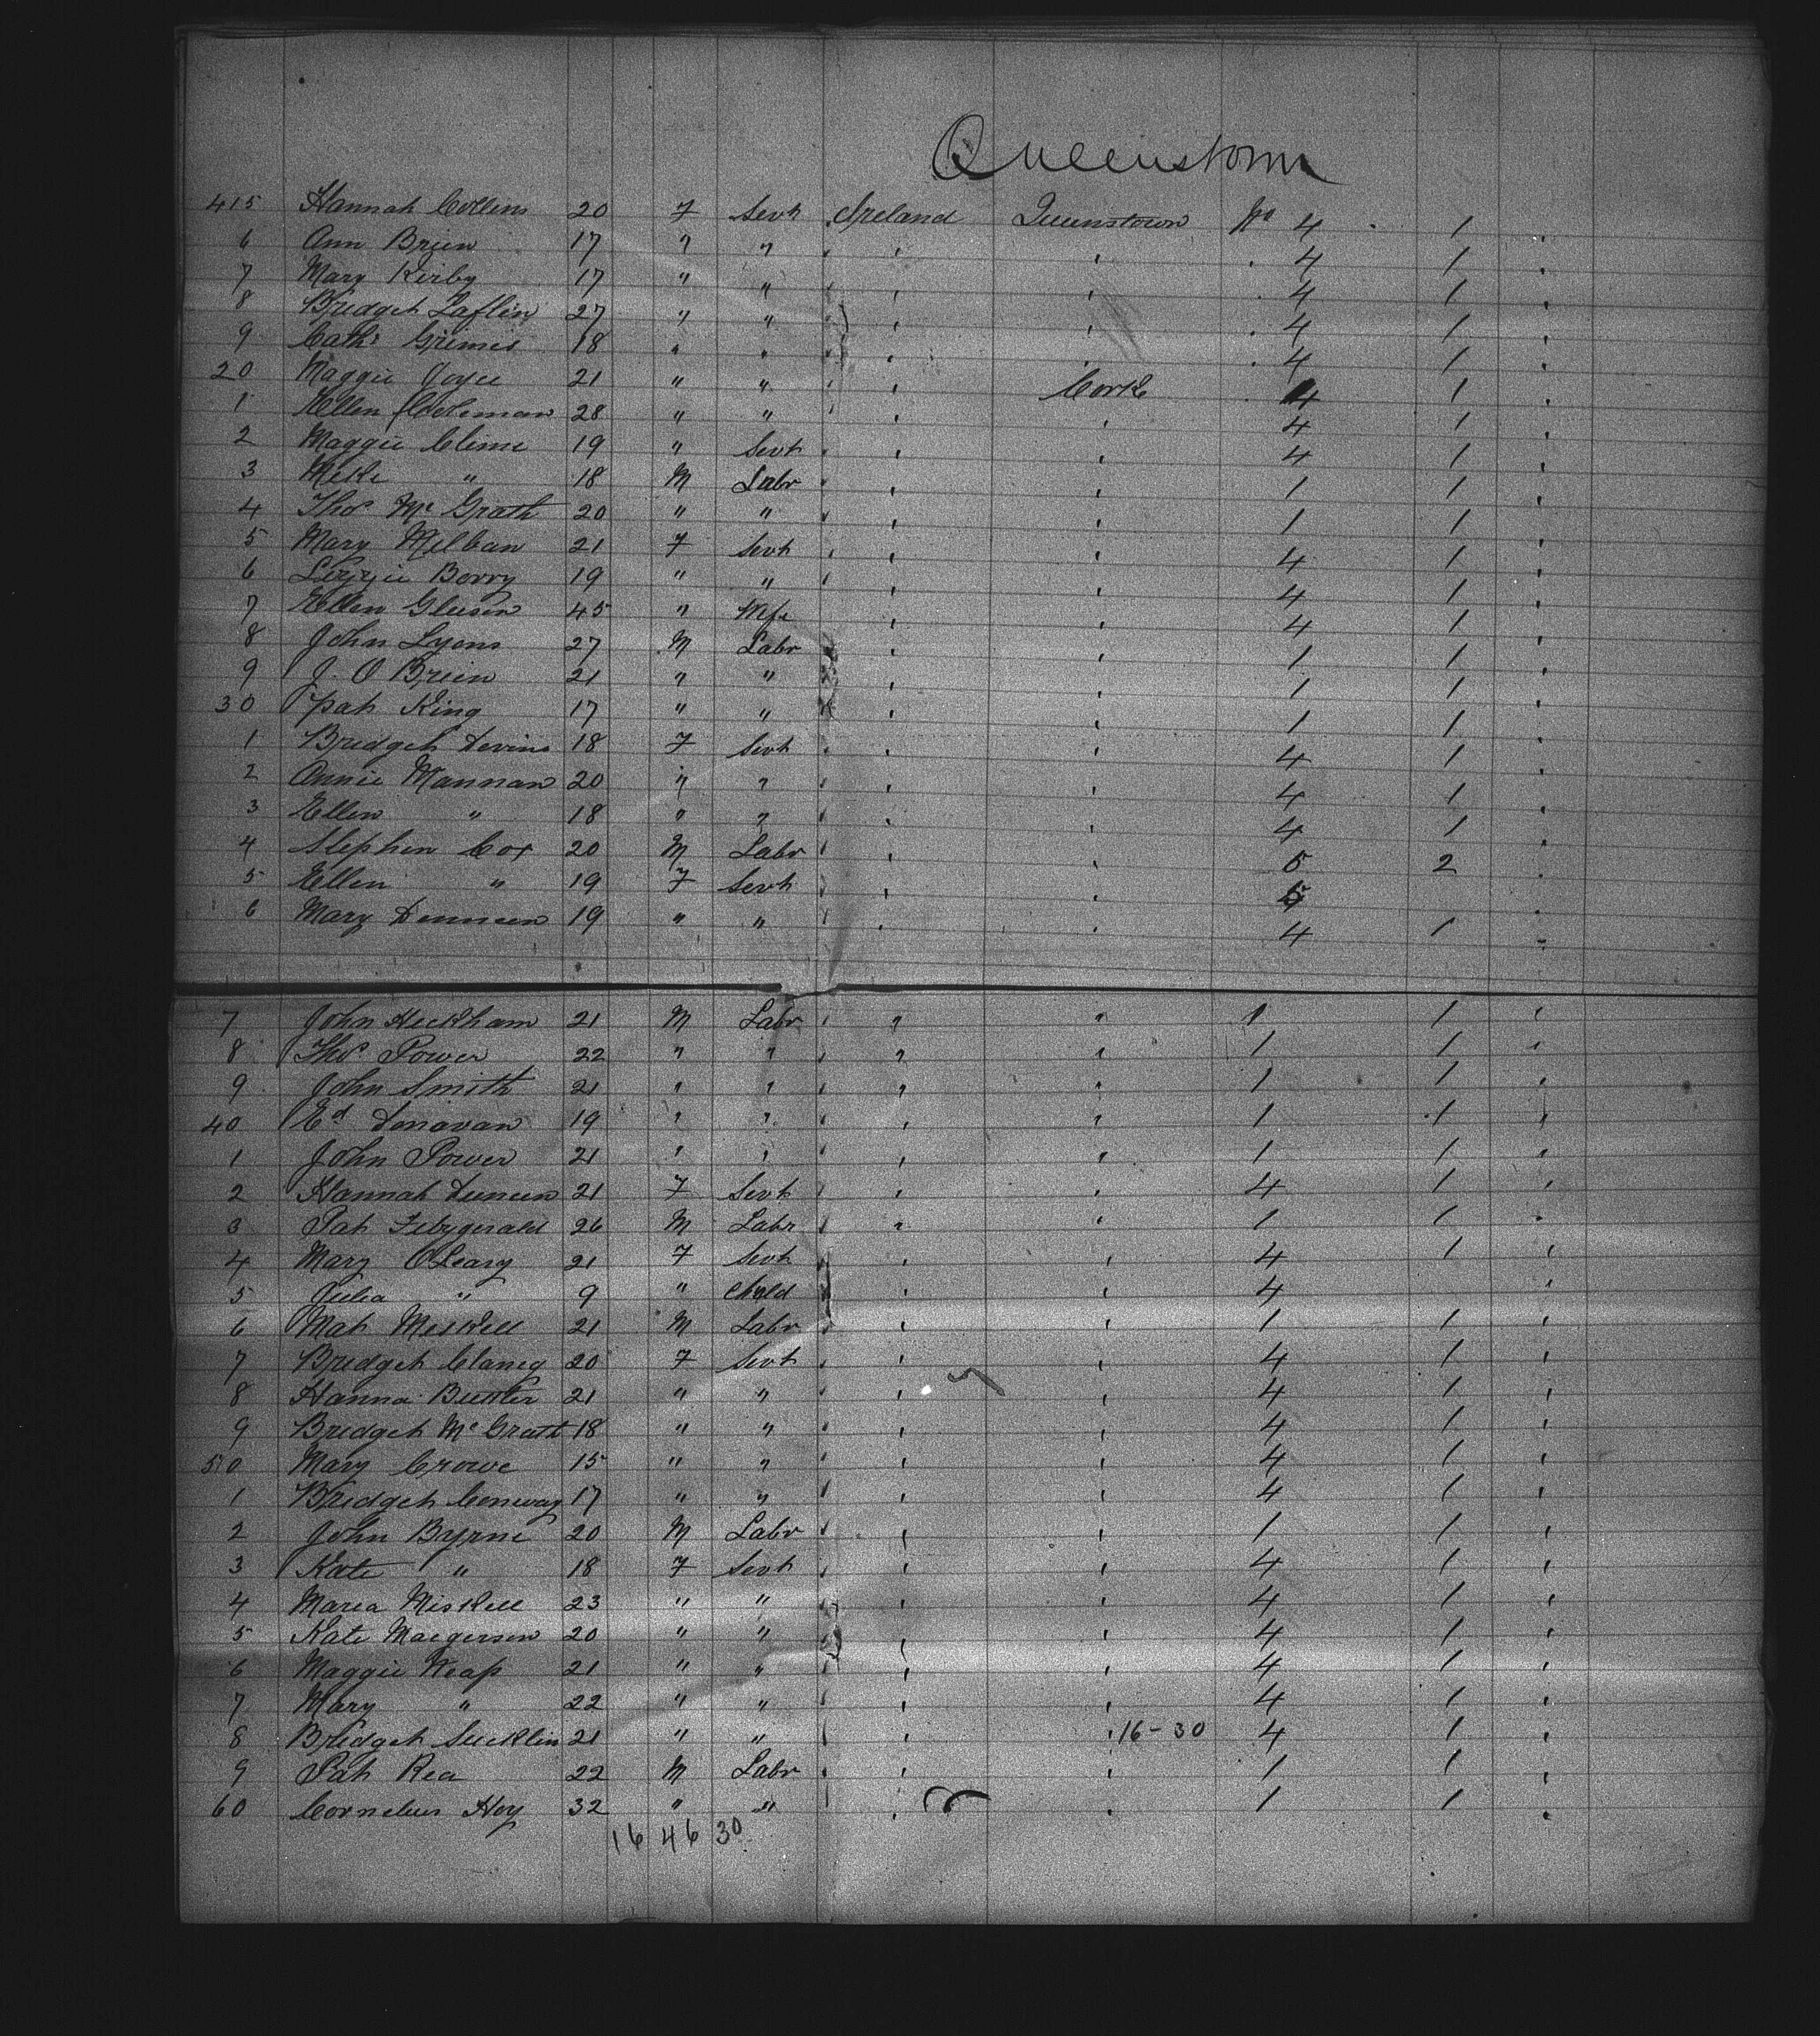 Queenstown
415 Hannah Collins 20 F Servt Ireland Queenstown No 4 1 "
6 Ann Brien 17 " " " " 4 1 "
7 Mary Kirby 17 " " " " 4 1 "
8 Bridget Laflin 27 " " " " 4 1 "
9 Cath Grimes 18 " " " " 4 1 "
20 Maggie Joyce 21 " " " Cork 4 1 "
1 Ellen Coleman 28 " " " " 4 1 "
2 Maggie Clime 19 " Servt " " 4 1 "
3 Mike " 18 M Labr " " 1 1 "
4 Thos McGrath 20 " " " " 1 1 "
5 Mary 21 F Servt " " 4 1 "
6 Lizzie Borry 19 " " " " 4 1 "
7 Ellen Gleeson 45 " Wife " " 4 1 "
8 John Lyons 27 M Labr " " 1 1 "
9 J. O Brien 21 " " " " 1 1 "
30 Pat King 17 " " " " 1 1 "
1 Bridget Devins 18 F Servt " " 4 1 "
2 Annie Mannan 20 " " " " 4 1 "
3 Ellen " 18 " " " " 4 1 "
4 Stephen Cox 20 M Labr " " 5 2 "
5 Ellen " 19 F Servt " " 5 "
6 Mary Denneen 19 " " " " 4 1 "
7 John Heckham 21 M Labr " " 1 1 "
8 Thos Power 22 " " " " 1 1 "
9 John Smith 21 " " " " 1 1 "
40 Ed Donavan 19 " " " " 1 1 "
1 John Power 21 " " " " 1 1 "
2 Hannah 21 F Servt " " 4 1 "
3 Pat Fitzgerald 26 M Labr " " 1 1 "
4 Mary OLeary 21 F Servt " " 4 1 "
5 Julia " 9 " Child " " 4 "
6 Mat Meskell 21 M Labr " " 1 1 "
7 Bridget Clancy 20 F Servt " " 4 1 "
8 Hanna 21 " " " " 4 1 "
9 Bridget McGrath 18 " " " " 4 1 "
50 Mary Crowe 15 " " " " 4 1 "
1 Bridget Conway 17 " " " " 4 1 "
2 John Byrne 20 M Labr " " 1 1 "
3 Kate " 18 F Servt " " 4 1 "
4 Maria Miskell 23 " " " " 4 1 "
5 Kate 20 " " " " 4 1 "
6 Maggie 21 " " " " 4 1 "
7 Mary " 22 " " " " 4 1 "
8 Bridget Sucklin 21 " " " " 16-30 4 1 "
9 Pat Rea 22 M Labr " " 1 1 "
60 Cornelius Hoy 32 " " " " 1 1 "
16 46 30